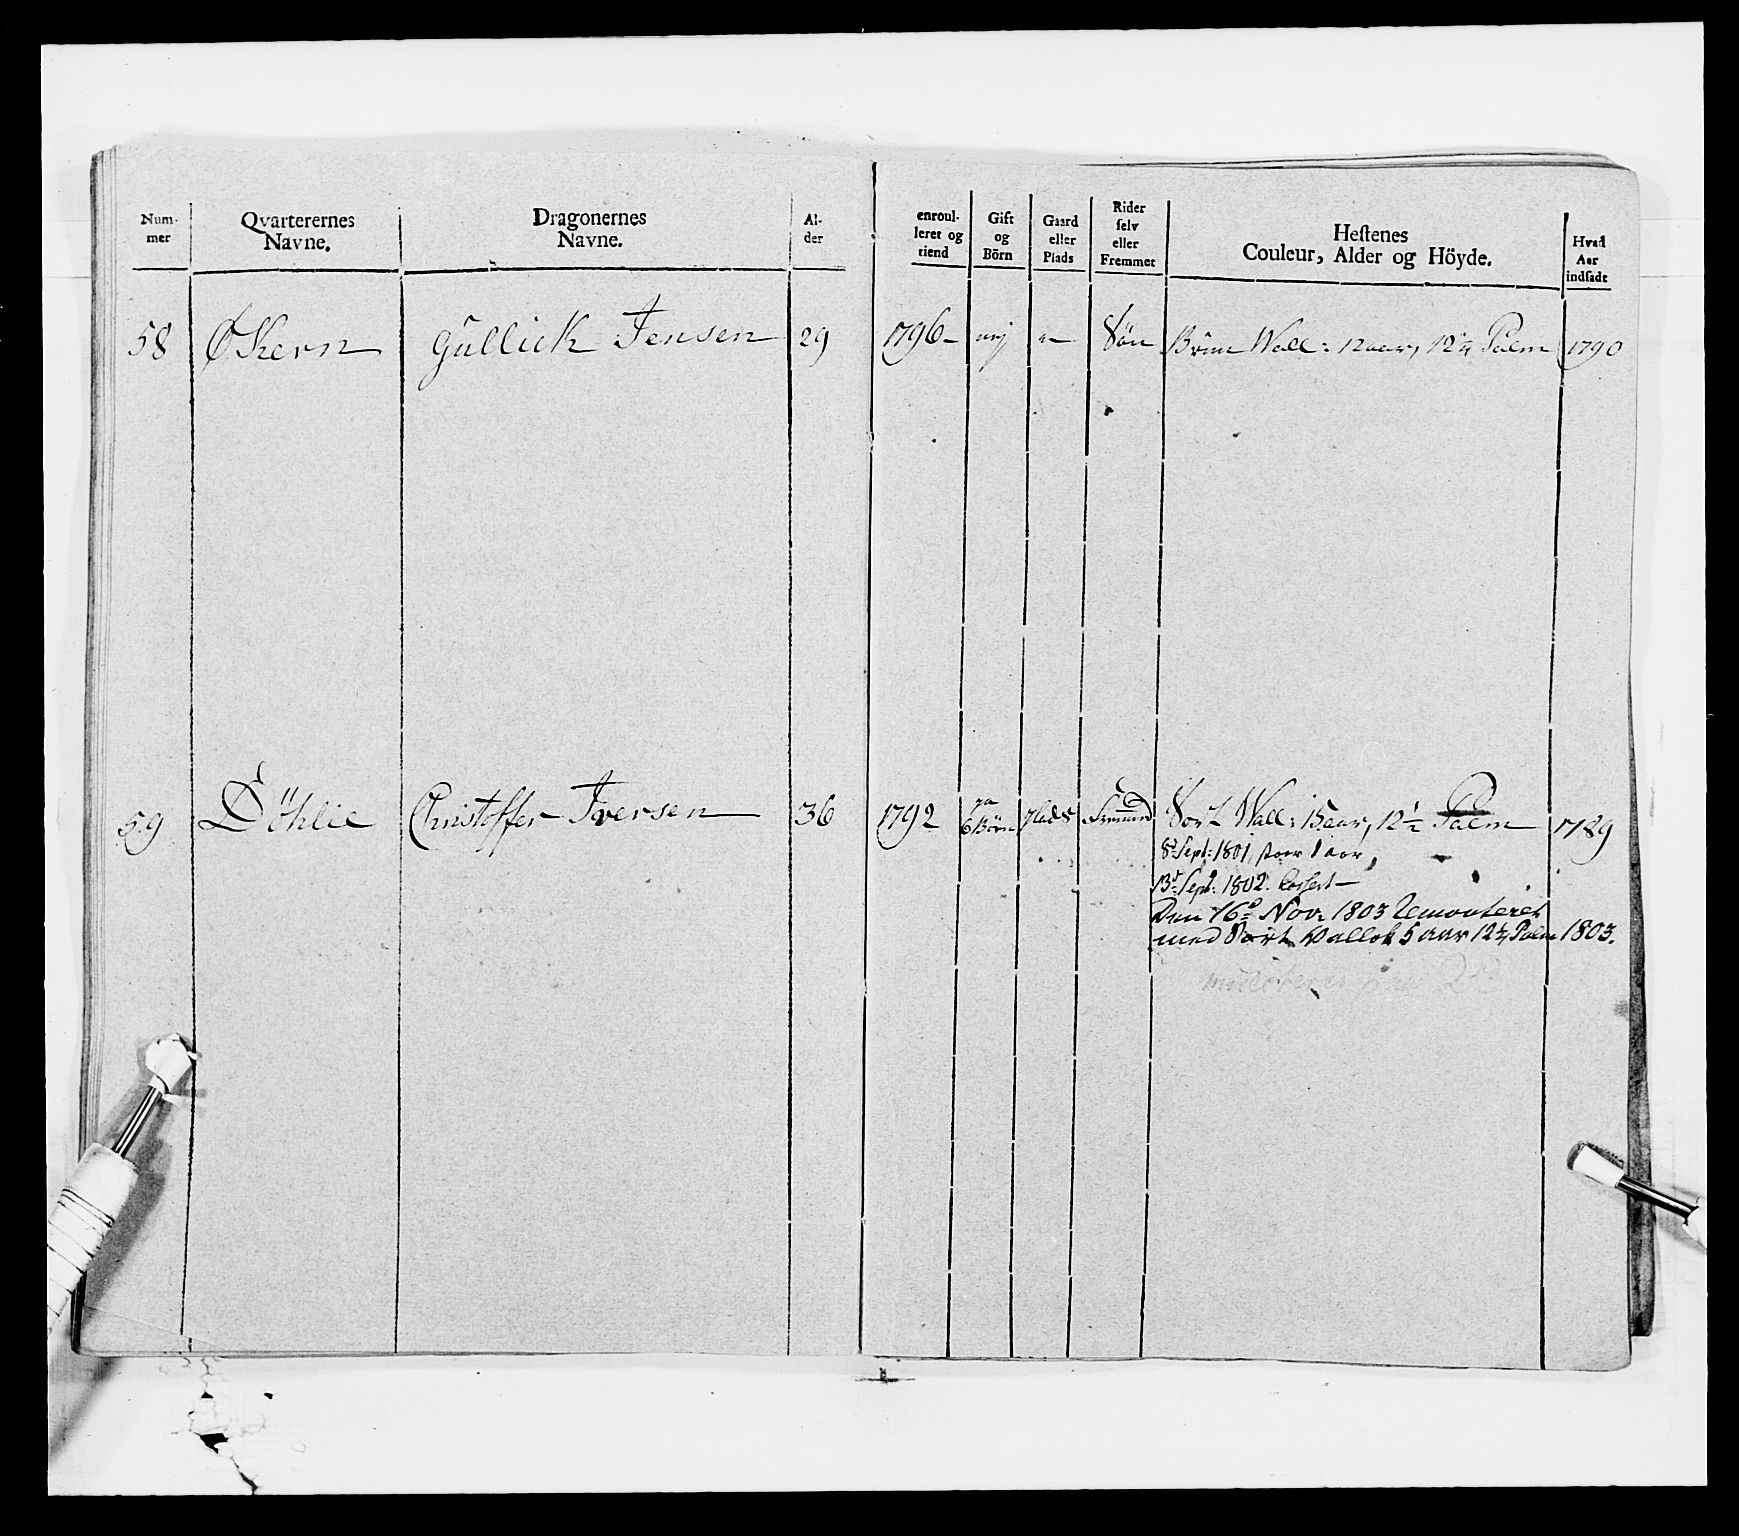 Num-
mer
Qvarterernes
Navne.
Dragonernes
Navne.
Al-
der
enroul-
leret og
tiend
Gift
og
Börn
Gaard
eller
Plads
Rider
selv
eller
Fremmet
Hestenes
Couleur, Alder og Höyde.
Hvad
Aar
indsadt
58 Økern Gullick Jensen 29 1796 nej Sön Brun Wall: 12 aar, 12 1/4 Palm 1790
59 Döhlie Christoffer Iversen 36 1792 ja 6 Börn Plads Fremmed Sort Wall: 15 aar, 12 1/2 Palm 1789
8d Sept: 1801 1 aar,
13d Sept: 1802. Cassert
Den 16d Nov 1803 Remonteret
med Sort Vallak 5 aar 12 1/2 Palm 1803.